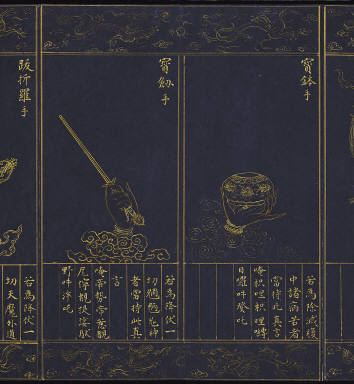 寶鉢手
若為除滅腹
中諸病苦者
當持此真言
唵枳哩枳哩嚩
日囉吽發吒
寶劔手
若為降伏一
切魍魎鬼神
者當持此真
言
唵帝勢帝惹覩
尾儞覩提婆馱
野吽泮吒
跋折羅手
若為降伏一
切天魔外道